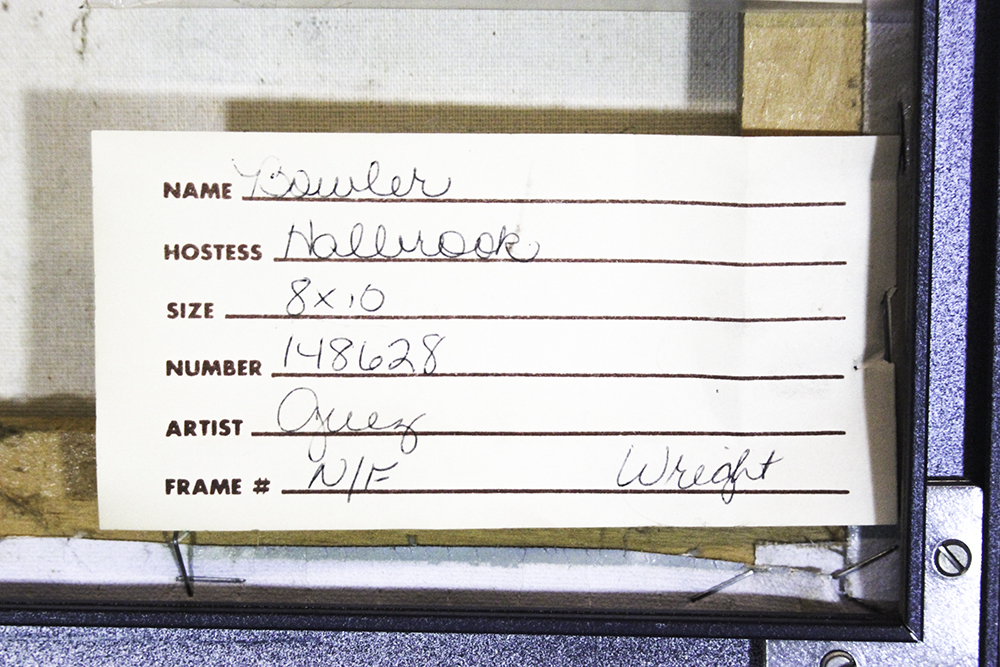 NAME Bowler
HOSTESS Hallrook
SIZE 8x10
NUMBER 148628
ARTIST
FRAME # N/F Wright